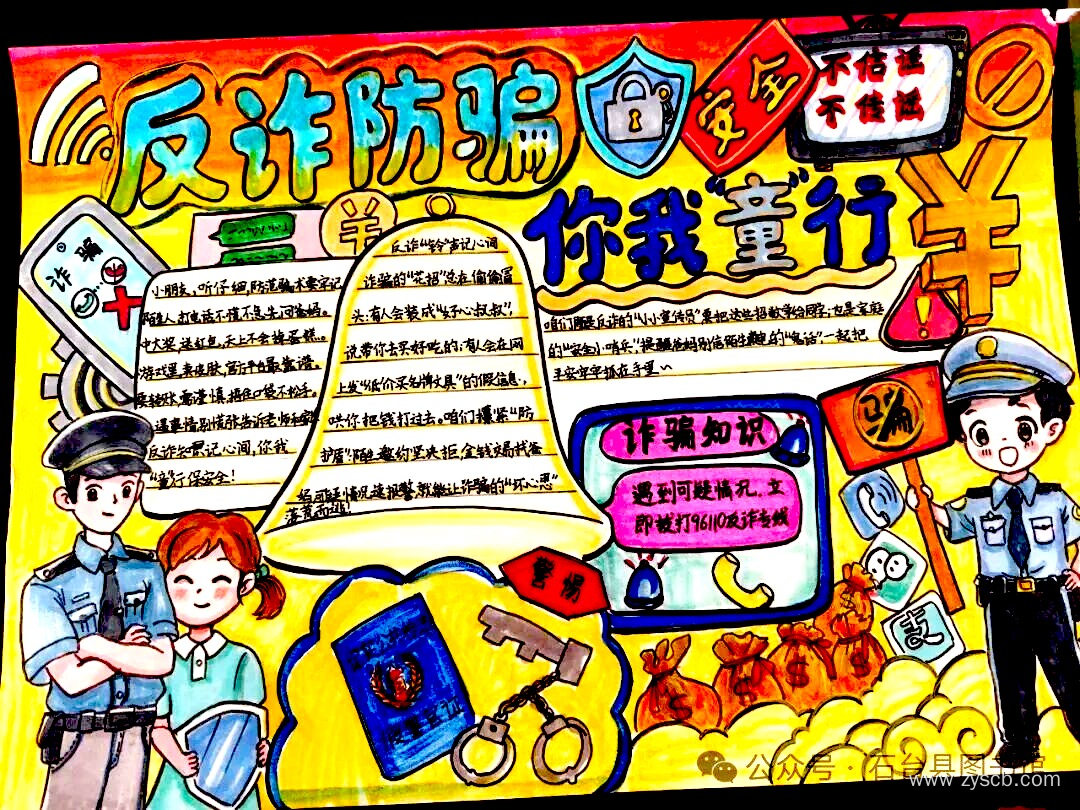 反诈防骗
安全
不信谣
不传谣
你我“童”行
诈骗
小朋友,听仔细,防范骗术要牢记
陌生人打电话不慌不急先问爸妈。
中大奖,送红包,天上不会掉蛋糕
游戏里卖皮肤,官方平台最靠谱。
捂住口袋不松手。
遇事情别慌张告诉老师和家长
反诈知识记心间,你我
“童”行保安全!
反诈“铃”声记心间
诈骗的“花招”总在偷偷冒
头:有人会装成“好心叔叔”,
说带你去买好吃的;有人会在网
上发“低价买名牌文具”的假信息,
哄你把钱打过去。咱们攥紧“防
护盾”陌生邀约坚决拒,金钱交易找爸
妈可疑情况速报警,就能让诈骗的“坏心思”
落荒而逃!
咱们既是反诈的“小小宣传员”要把这些招数学给同学;也是家庭
的“安全小哨兵”,提醒爸妈别信陌生来电的“鬼话”,一起把
平安牢牢抓在手里~
骗
诈骗知识
遇到可疑情况,立
即拨打96110反诈专线
警惕
支
公众号·石台县图书馆
www.zyscb.com